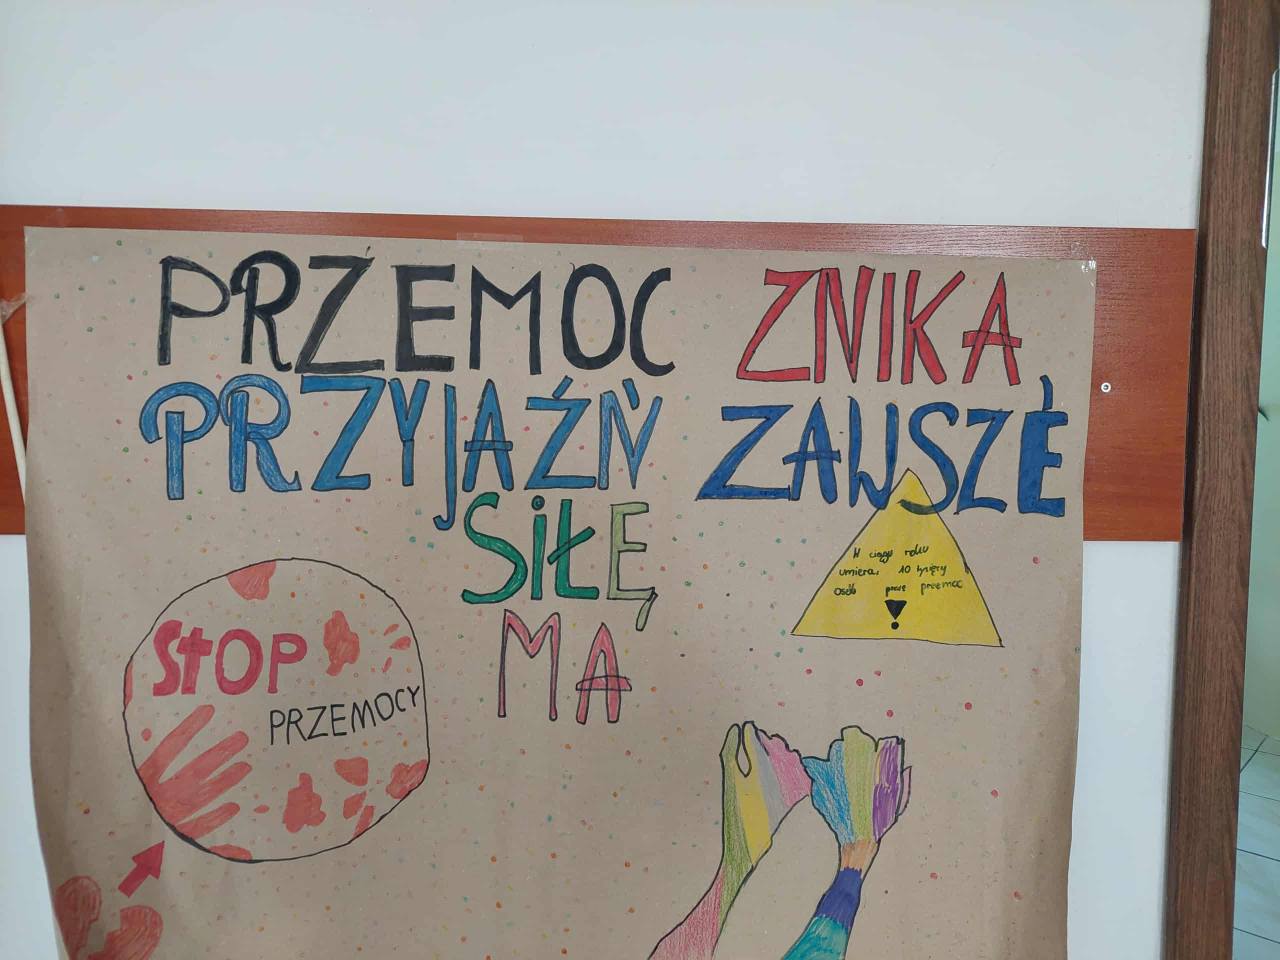 PRZEMOC ZNIKA
PRZYJAŹŃ ZAWSZE
SIŁĘ
MA
W ciągu roku
umiera 10 tysięcy
osób przez przemoc
!
STOP
PRZEMOCY